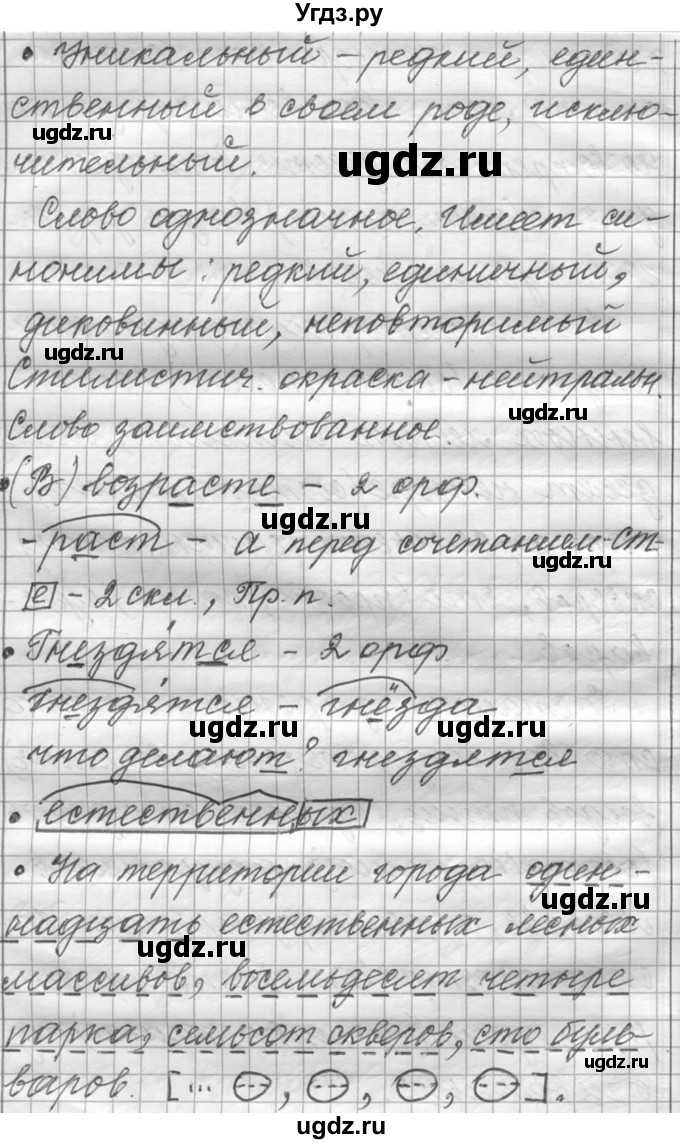 Угдз.ру
• Уникальный – редкий, един-
ственный в своем роде, исклю-
ugdz.ru ugdz.ru
чительный. ugdz.ru
Слово однозначное. Имеет си-
нонимы: редкий, единичный,
диковинный, неповторимый
ugdz.ru
Стилистич. окраска – нейтральн.
ugdz.ru
Слово заимствованное.
• (В) возрасте – 2 орф.
ugdz.ru
-раст – а перед сочетанием -ст-
ugdz.ru
е – 2 скл., Пр. п.
• Гнездятся – 2 орф.
ugdz.ru
гнездятся – гнёзда
ugdz.ru ugdz.ru
что делают? гнездятся
• естественных
• На территории города один-
ugdz.ru
надцать естественных лесных
ugdz.ru
массивов, восемьдесят четыре
парка, семьсот скверов, сто буль-
ugdz.ru
варов. [... , , , ].
ugdz.ru